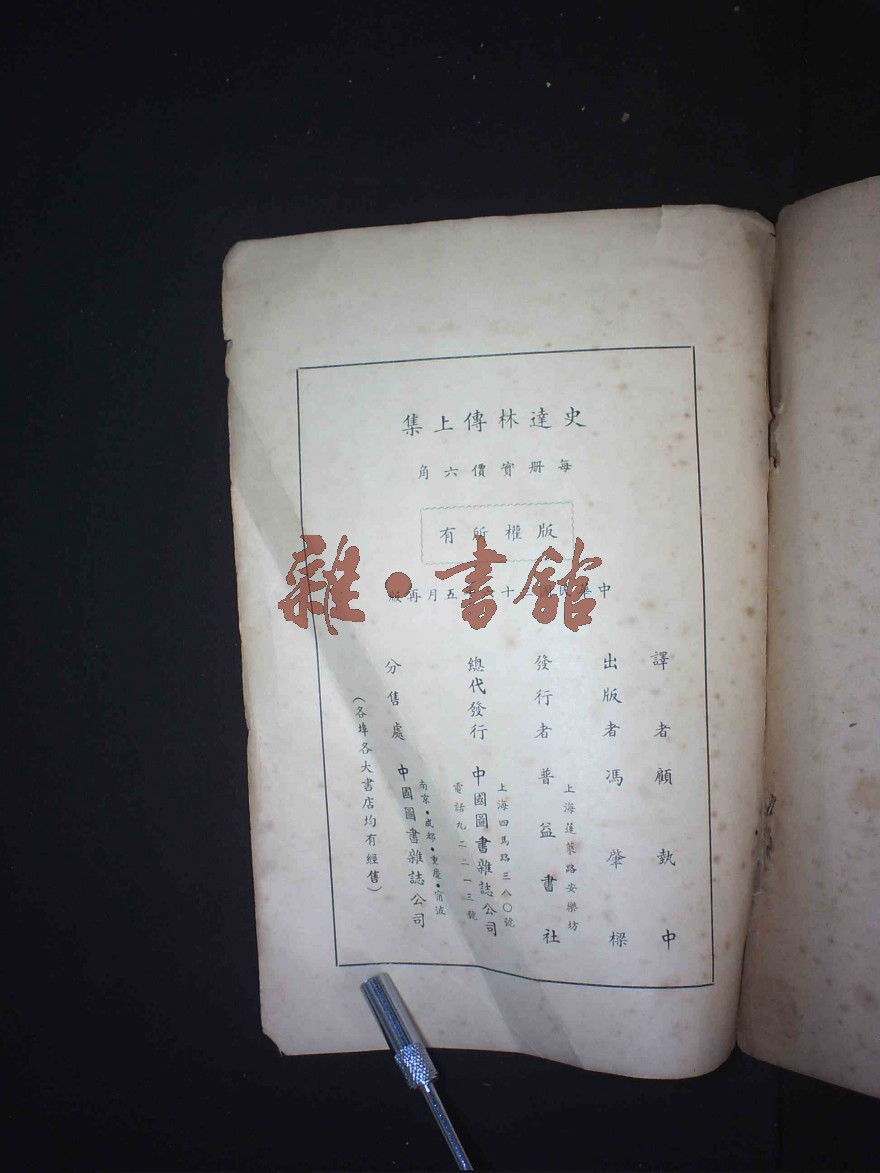 史達林傳上集
每册實價六角
版權所有
中華民國十五月再版
譯者顧執中
出版者馮肇樑
發行者普益書社
上海蓬萊路安樂坊
總代發行中國圖書雜誌公司
上海四馬路三八〇號
電話九二二一三號
分售處中國圖書雜誌公司
南京·成都·重慶·甯波
(各埠各大書店均有經售)
雜·書館